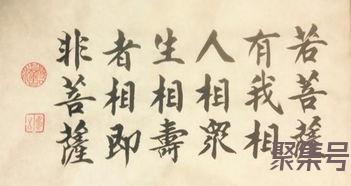 若菩薩
有我相
人相眾
生相壽
者相即
非菩薩
聚集号